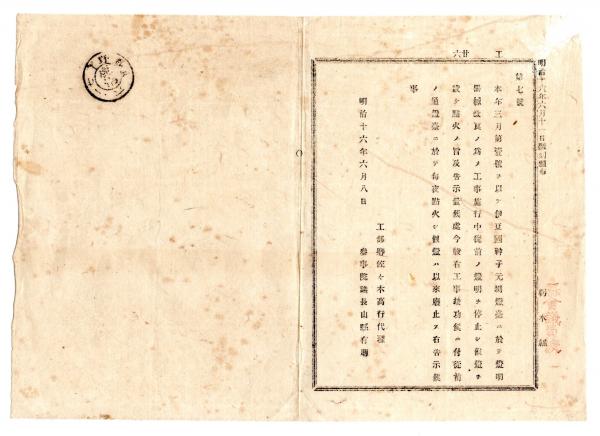 明治十六年六月十一日
栃木縣
工 廿六
第七號
本年三月第壹號ヲ以テ伊豆國神子元嶋燈臺ニ於テ燈明
器械改良ノ爲メ工事施行中從前ノ燈明ヲ停止シ假燈ヲ
設ケ點火ノ旨及告示置候處今般右工事竣功候ニ付從前
ノ通燈臺ニ於テ每夜點火シ假燈ハ以來廢止ス右告示候
事
明治十六年六月八日
工部卿佐々木高行代理
參事院議長山縣有朋